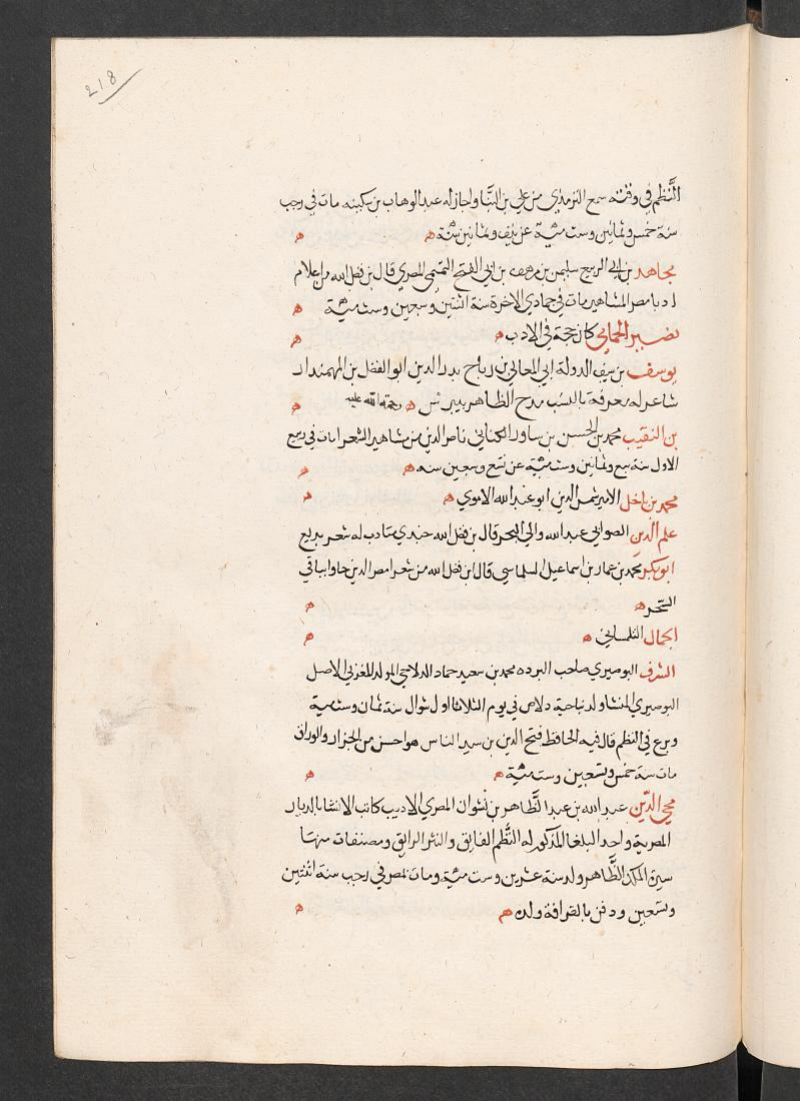 218
النَّظم في وقته سمع الترمذي من علي بن البنَّا واجاز له عبد الوهاب بن سكينه مات في رجب
سنة خمس وثمانين وست مئية عن نيف وثمانين سنة ه ه
مجاهد بن ابي الربيع سليمن بن مرهف بن ابي الفتح التميمي المصري قال بن فضل الله من اعلام
ادبا مصر المشاهير مات في جمادي الاخرة سنة اثنتين وسبعين وست مئية ه
نصير الحمامي كان حجة في الادب ه ه
يوسف بن سيف الدولة ابي المعالي بن رباح بدر الدين ابو الفضل بن المهمندار
شاعر له معرفة بالنسب مدح الظاهر بيبرس ه رحمة الله عليه ه
بن النقيب محمد بن الحسن بن ساور الكناني ناصر الدين من مشاهير الشعرا مات في ربيع
الاول سنة سبع وثمانين وست مئية عن تسع وسبعين سنه ه ه
محمد بن باخل الامير شمس الدين ابو عبد الله الاموي ه ه
علم الدين الصوابي عبد الله والي البحر قال بن فضل الله جندي متادب له شعر بديع
ابو بكر محمد بن عمار بن اسماعيل السلماسي قال ابن فضل الله من شعرا مصر الذين جاوا بباقي
السّحر ه ه
الجمال التلمساني ه ه
الشرف البوصيري صاحب البرده محمد بن سعيد حماد الدلاصي المولد المغربي الاصل
البوصيري المنشا ولد بناحية دلاص في يوم الثلاثا اول شوال سنة ثمان وست مية
وبرع في النظم قال فيه الحافظ فتح الدين بن سيد الناس هو احسن من الجزار والوراق
مات سنة خمس وتسعين وست مئية ه ه
محي الدّين عبد الله بن عبد الظَّاهر بن نشوان المصري الاديب كاتب الانشا بالديار
المصرية واحد البلغا المذكور له النَّظم الفايق والنثر الرايق ومصنفات منها
سيرة الملك الظَّاهر ولد سنة عشرين وست مئية ومات بمصر في رجب سنة اثنتين
وتسعين ودفن بالقرافة ولده ه ه